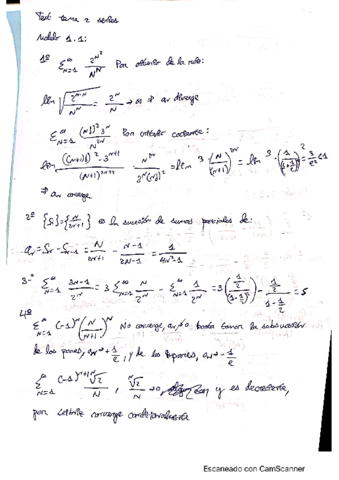 Test tema 2 series
Modelo 1.1:
1º Σ_{N=1}^∞ 2^{N²}/N^N Por criterio de la raíz:
lim ᴺ√(2^{N·N}/N^N) = 2^N/N → ∞ ⇒ aN diverge
Σ_{N=1}^∞ (N!)² 3^N/N^{2N} Por criterio cociente:
lim ((N+1)!)²·3^{N+1}/(N+1)^{2N+2} · N^{2N}/(3^N(N!)²) = lim 3(N/(N+1))^{2N} = lim 3·(1/(1+1/N)^N)² = 3/e² < 1
⇒ aN converge
2º {SN} = {N/(2N+1)} es la sucesión de sumas parciales de:
aN = SN - SN-1 = N/(2N+1) - (N-1)/(2N-1) = 1/(4N²-1)
3º Σ_{N=1}^∞ (3N-1)/2^N = 3 Σ_{N=1}^∞ N/2^N - Σ_{N=1}^∞ 1/2^N = 3((1/2)/(1-1/2)²) - (1/2)/(1-1/2) = 5
4º
Σ_{N=1}^∞ (-1)^N (N/(N+1))^N No converge, aN↛0 basta tomar la subsucesión
de los pares, aN → +1/e, y de los impares, aN → -1/e
Σ_{N=1}^∞ (-1)^{N+1} ᴺ√2/N, ᴺ√2/N → 0, y es decreciente,
por Leibniz converge condicionalmente
Escaneado con CamScanner